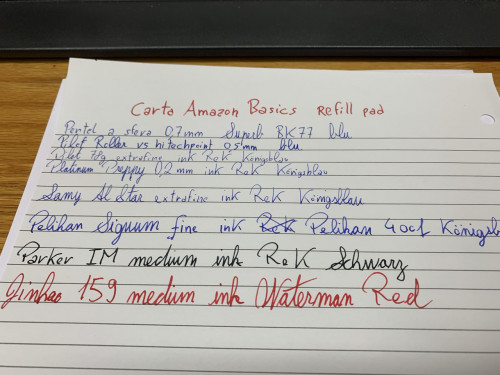 Carta Amazon Basics Refill pad
Pentel a sfera 0,7mm Superb BK77 blu
Pilot Roller V5 hitechpoint 0,5mm blu
Pilot 78g extrafine ink R&K Königsblau
Platinum Preppy 0,2mm ink R&K Königsblau
Lamy Al Star extrafine ink R&K Königsblau
Pelikan Signum fine ink R&K Pelikan 4001 Königsb
Parker IM medium ink R&K Schwarz
Jinhao 159 medium ink Waterman Red